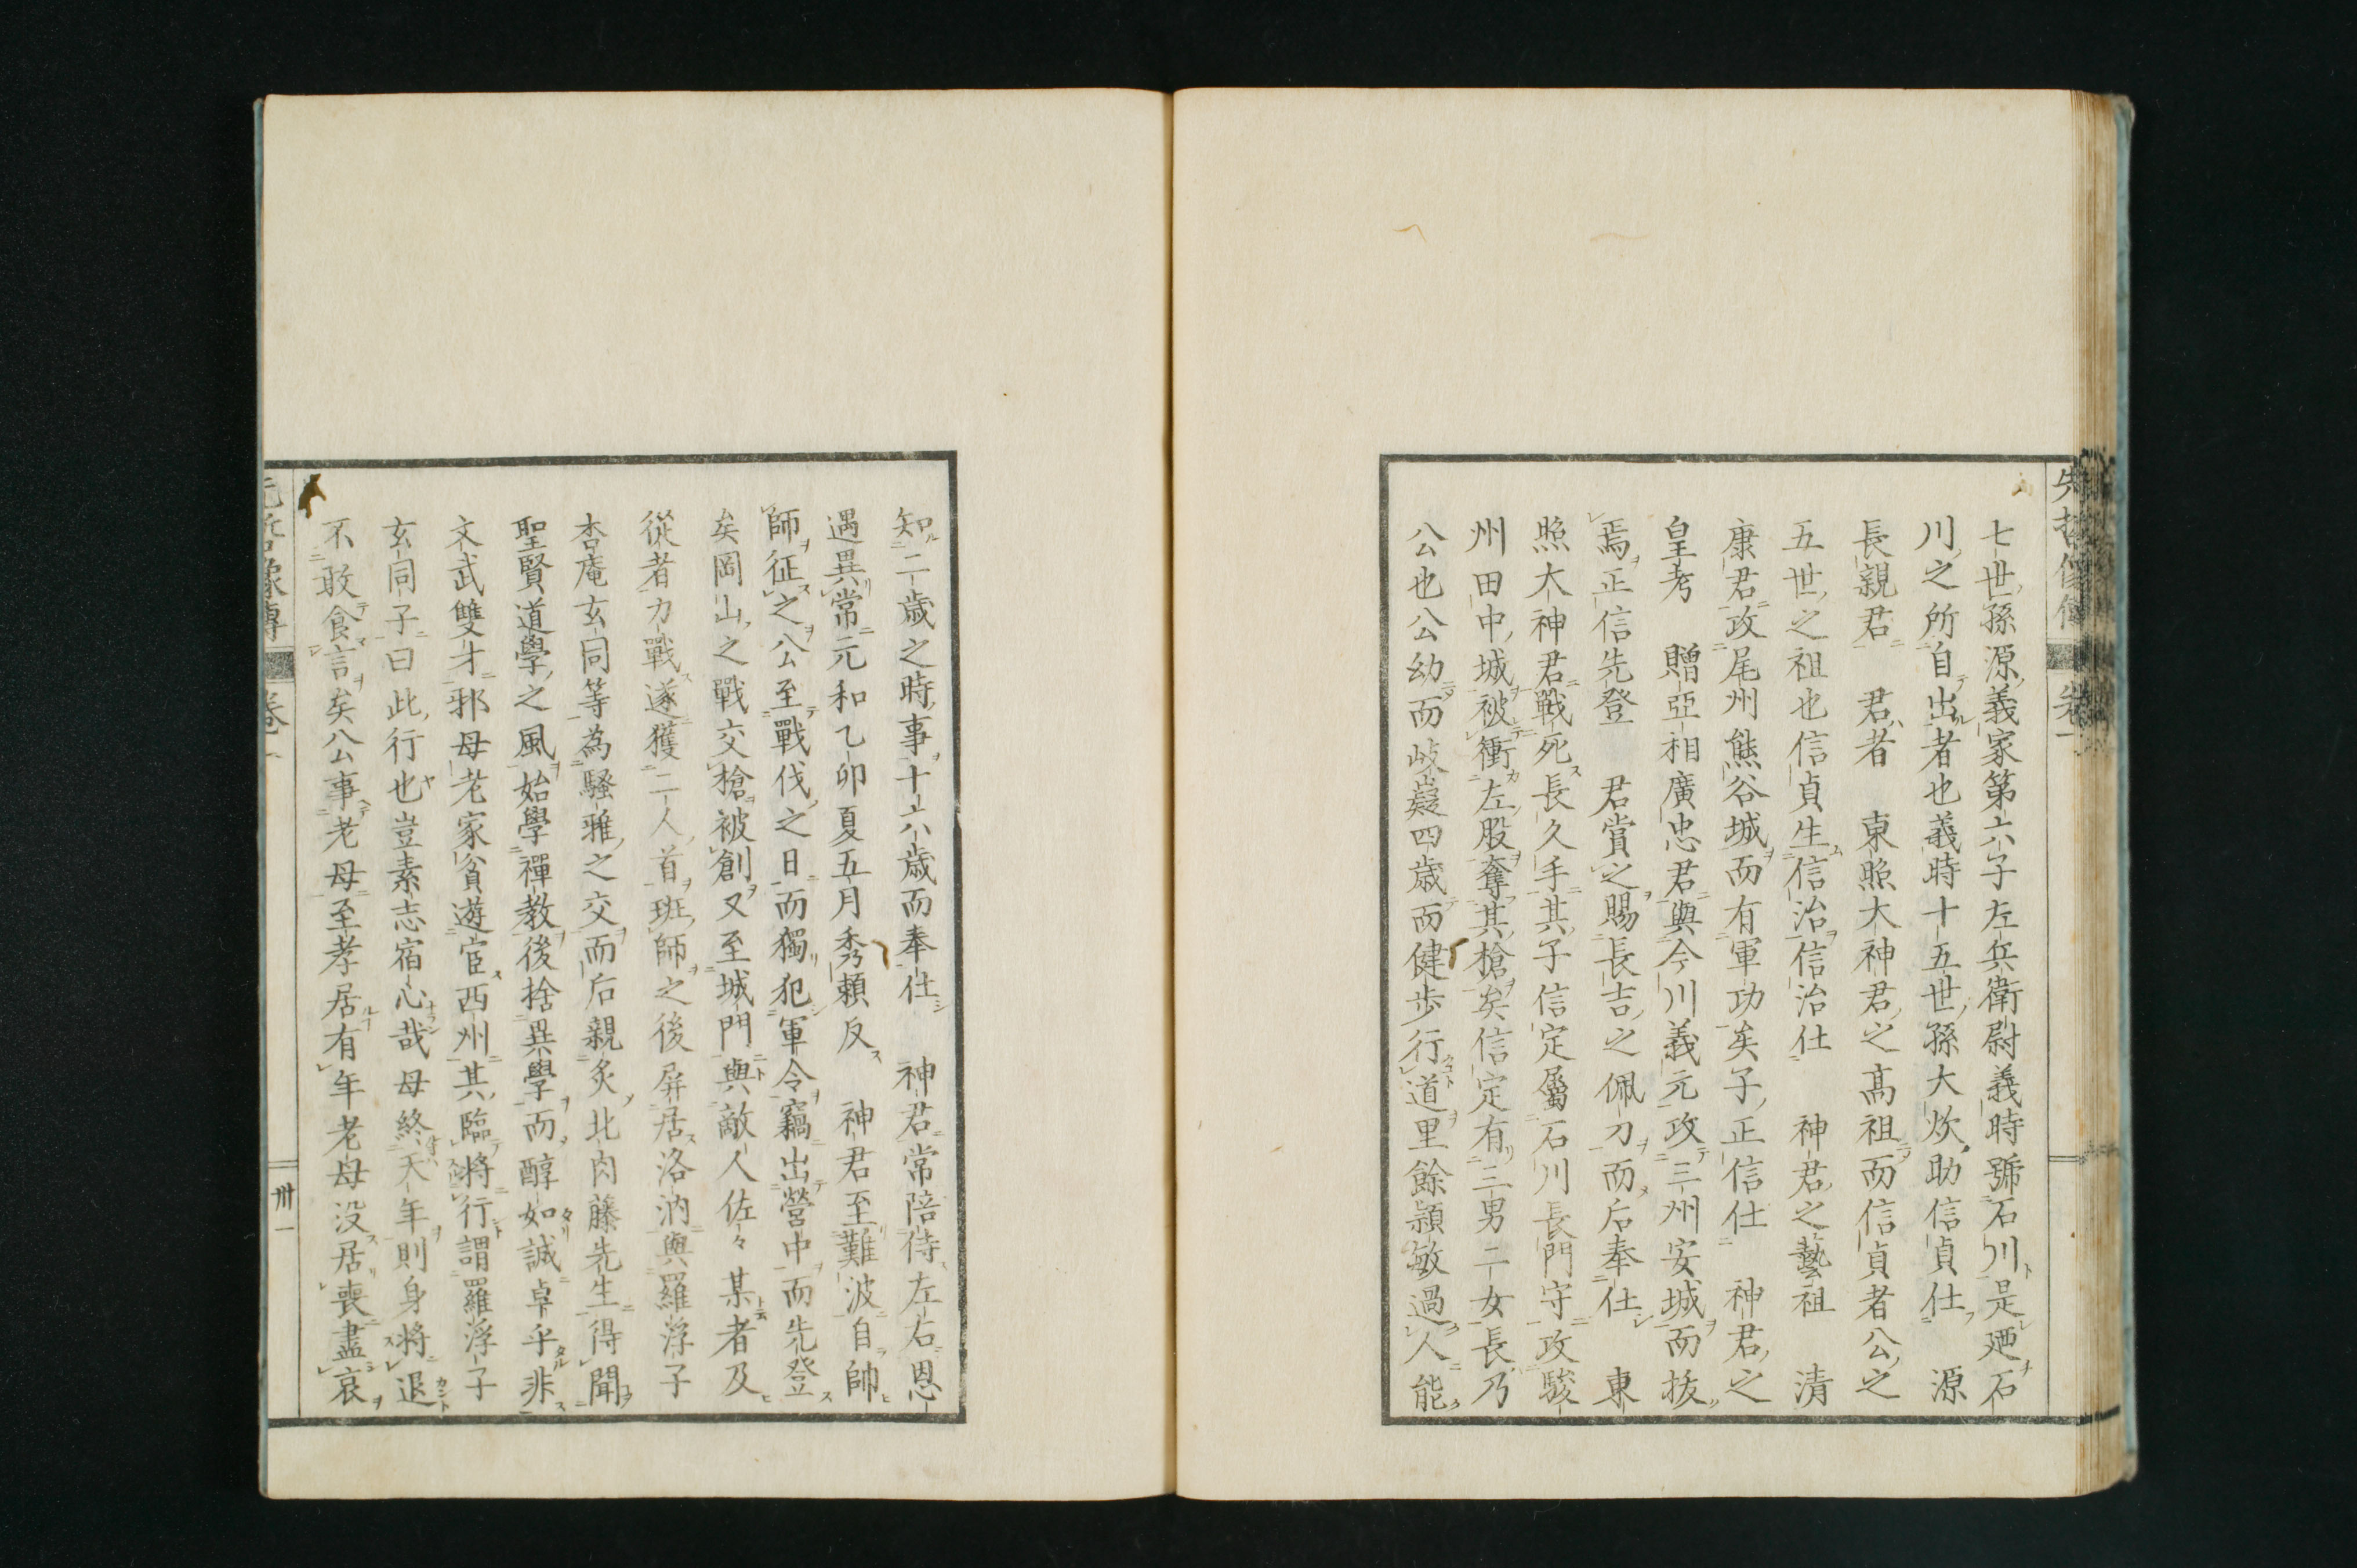 七世孫源義家第六子左兵衛尉義時號石川是廼石
川之所自出者也義時十五世孫大炊助信貞仕　源
長親君　君者　東照大神君之髙祖而信貞者公之
五世之祖也信貞生信治信治仕　神君之藝祖　清
康君攻尾州熊谷城而有軍功矣子正信仕　神君之
皇考　贈亞相廣忠君與今川義元攻三州安城而拔
焉正信先登　君賞之賜長吉之佩刀而后奉仕　東
照大神君戰死長久手其子信定屬石川長門守攻駿
州田中城被衝左股奪其槍矣信定有三男二女長乃
公也公幼而岐嶷四歳而健歩行道里餘頴敏過人能
知二歳之時事十六歳而奉仕　神君常陪侍左右恩
遇異常元和乙卯夏五月秀頼反　神君至難波自帥
師征之公至戰伐之日而獨犯軍令竊出營中而先登
矣岡山之戰交槍被創又至城門與敵人佐々某者及
從者力戰遂獲二人首班師之後屏居洛汭與羅浮子
杏庵玄同等為騷雅之交而后親炙北肉藤先生得聞
聖賢道學之風始學禪教後捨異學而醇如誠卓乎非
文武雙才邪母老家貧遊宦西州其臨將行謂羅浮子
玄同子曰此行也豈素志宿心哉母終天年則身將退
不敢食言矣公事老母至孝居有年老母没居喪盡哀
卷一
卅一